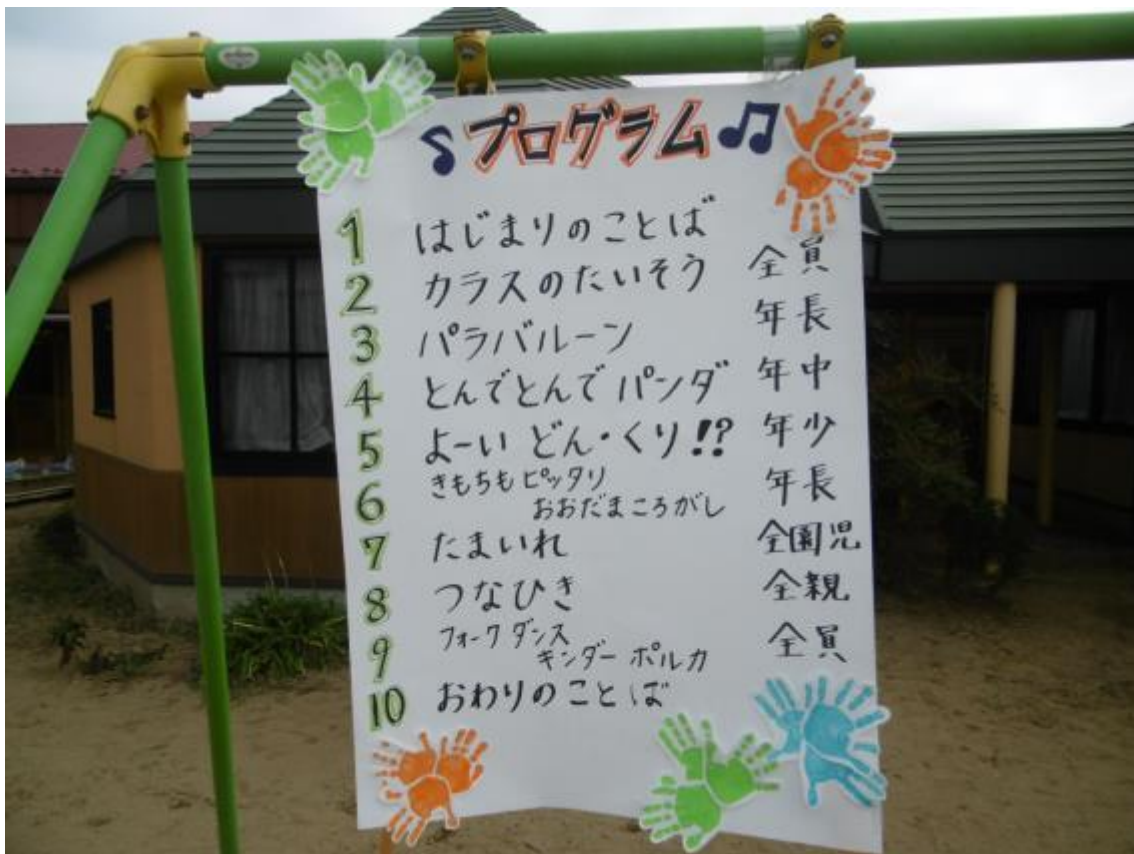 ♪プログラム♫
1 はじまりのことば
2 カラスのたいそう 全員
3 パラバルーン 年長
4 とんでとんでパンダ 年中
5 よーい どん・くり!? 年少
6 きもちもピッタリ
おおだまころがし 年長
7 たまいれ 全園児
8 つなひき 全親
9 フォークダンス
キンダーポルカ 全員
10 おわりのことば